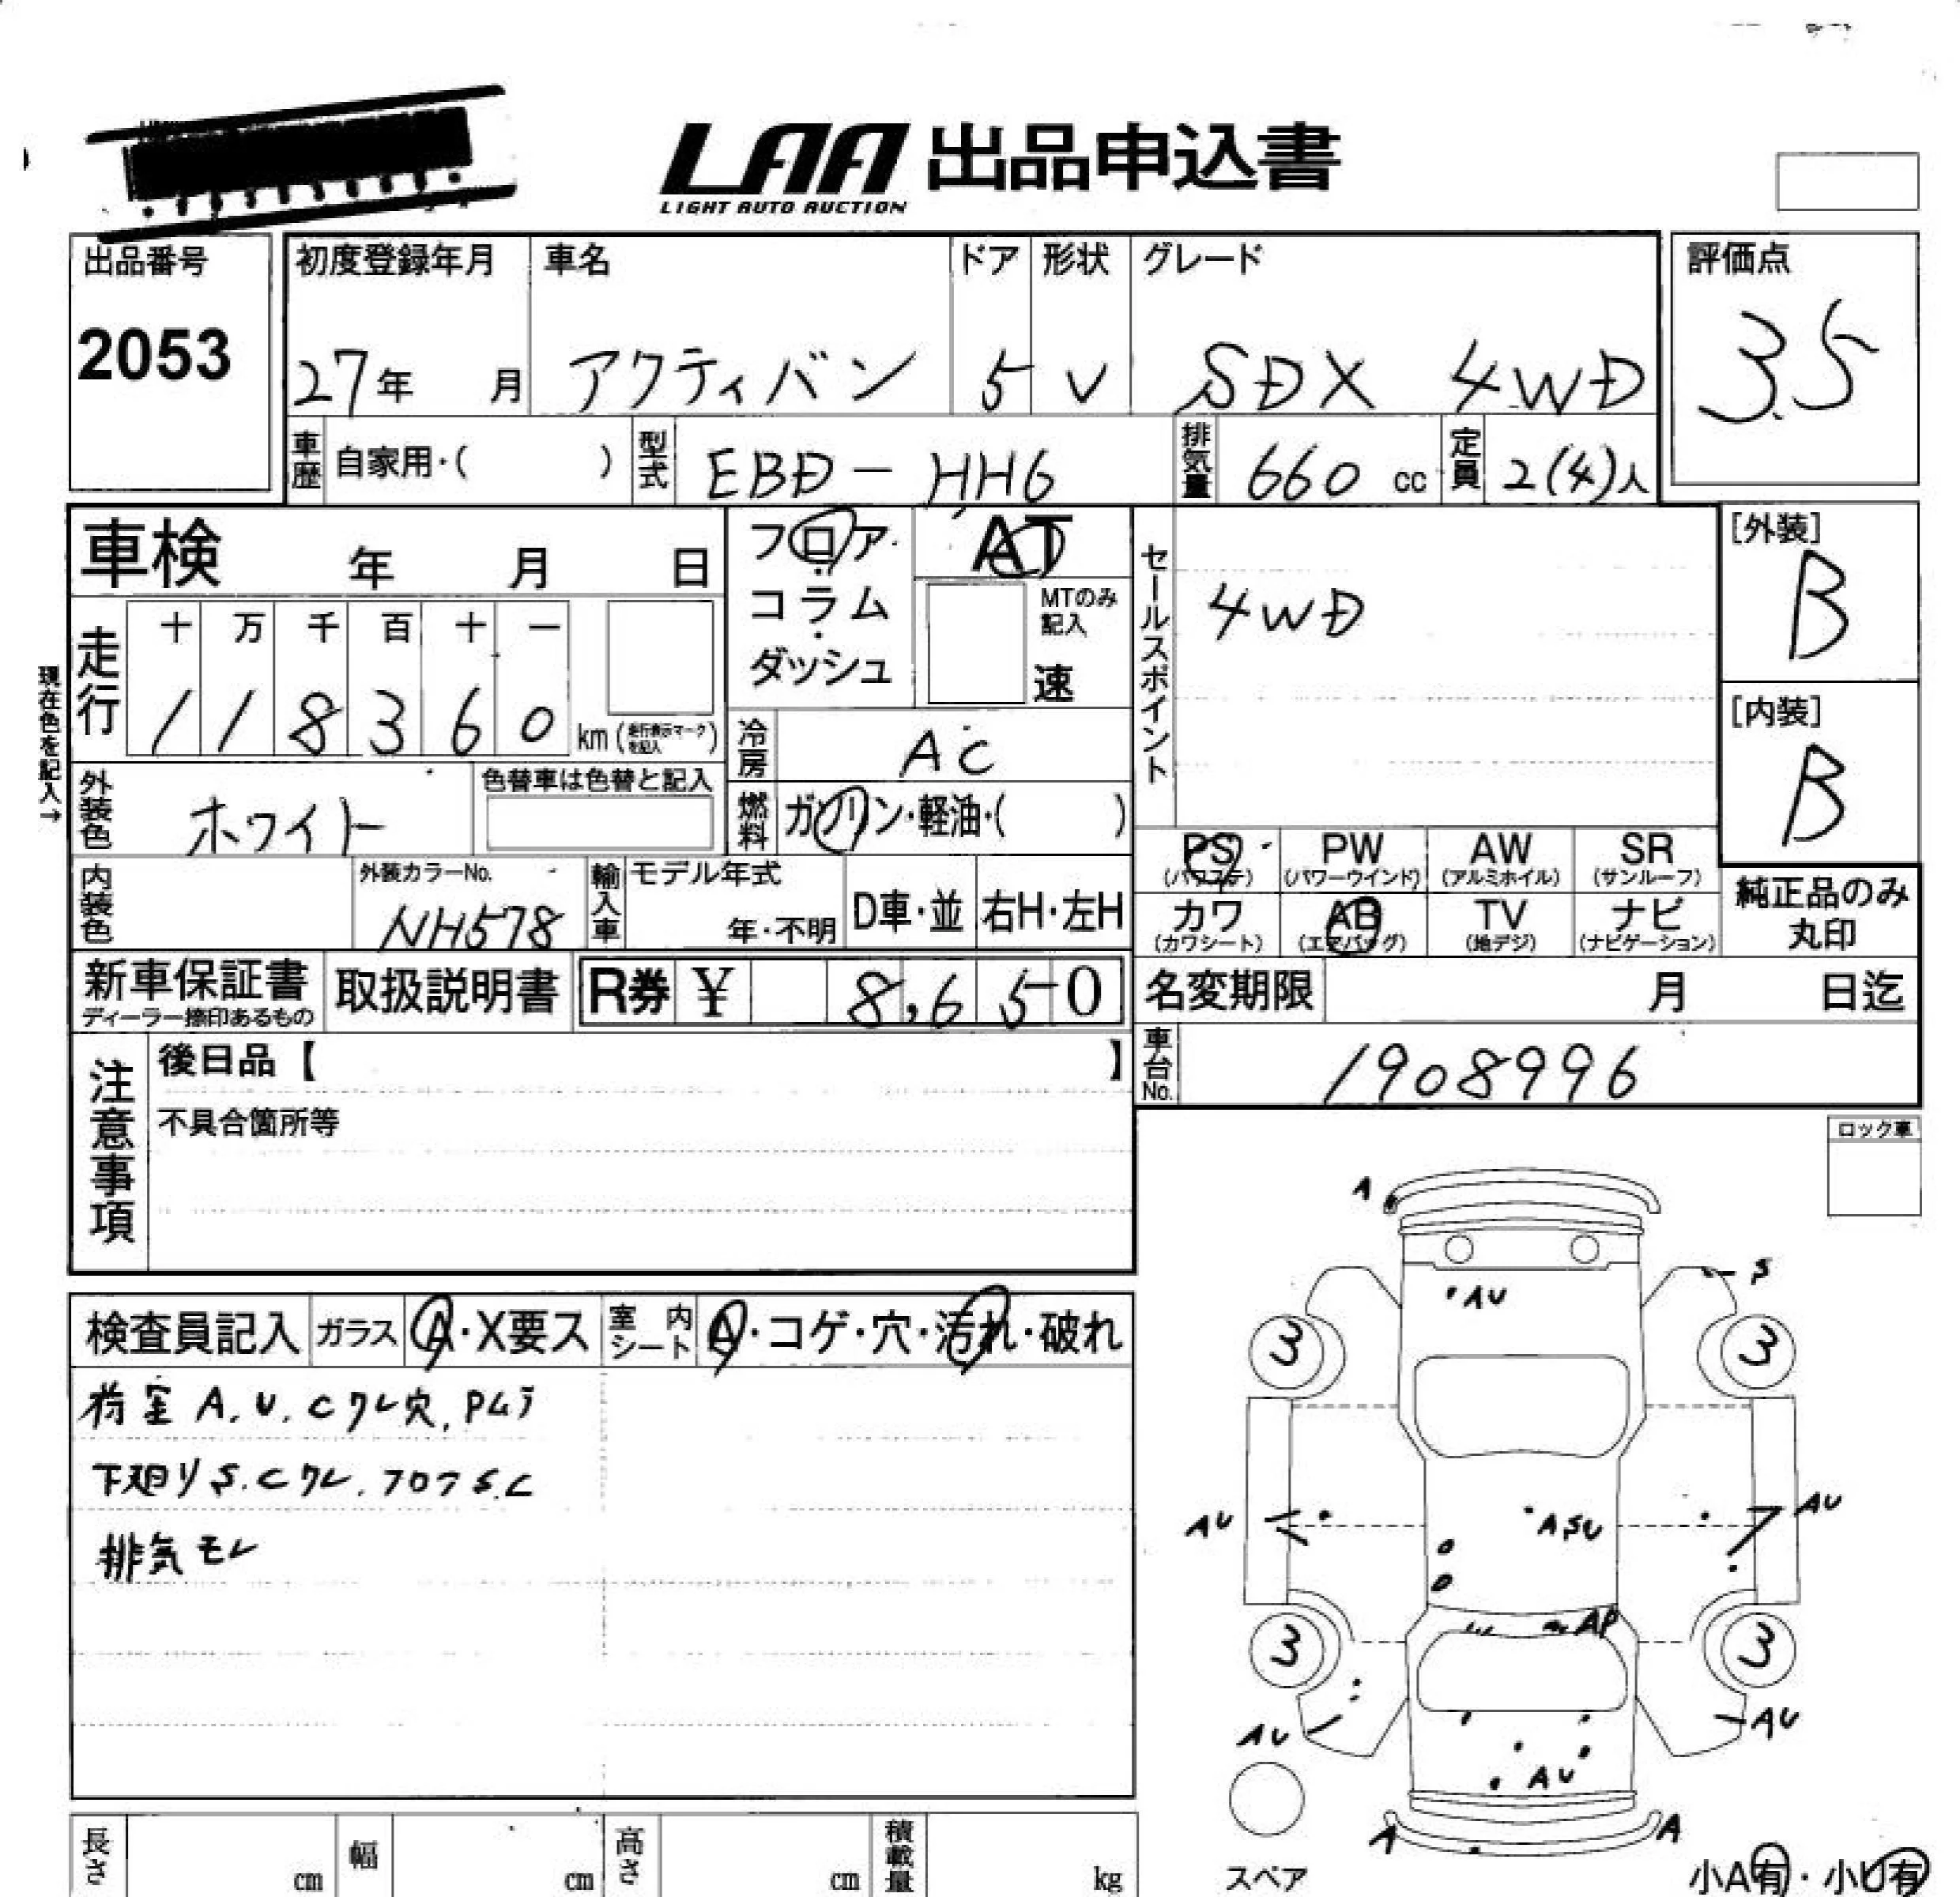 LAA 出品申込書
LIGHT AUTO AUCTION
出品番号
2053
初度登録年月 車名 ドア 形状 グレード
27年 月 アクティバン 5 V SDX 4WD
評価点
3.5
車歴 自家用・( ) 型式 EBD-HH6 排気量 660 cc 定員 2(4)人
車検 年 月 日
フロア・コラム・ダッシュ
AT
MTのみ記入
速
セールスポイント
4WD
[外装]
B
[内装]
B
現在色を記入→
走行 十 万 千 百 十 一
1 1 8 3 6 0 km (走行表示マークを記入)
冷房 AC
外装色 ホワイト 色替車は色替と記入
燃料 ガソリン・軽油・( )
内装色 外装カラーNo. NH578
輸入車 モデル年式 年・不明 D車・並 右H・左H
PS (パワステ) PW (パワーウインド) AW (アルミホイル) SR (サンルーフ)
カワ (カワシート) AB (エアバッグ) TV (地デジ) ナビ (ナビゲーション)
純正品のみ丸印
新車保証書 ディーラー捺印あるもの 取扱説明書 R券 ¥ 8,650
名変期限 月 日迄
車台No. 1908996
注意事項
後日品【 】
不具合箇所等
ロック車
検査員記入 ガラス A・X要ス 室内シート A・コゲ・穴・汚れ・破れ
荷室 A.U.Cワレ穴,Pムラ
下廻りS.Cワレ.フロアS.C
排気モレ
A
AU
S
3 3
AU ASU AU
AP
3 3
AU AU
AU
A A
スペア
小A有・小U有
長さ cm 幅 cm 高さ cm 積載量 kg